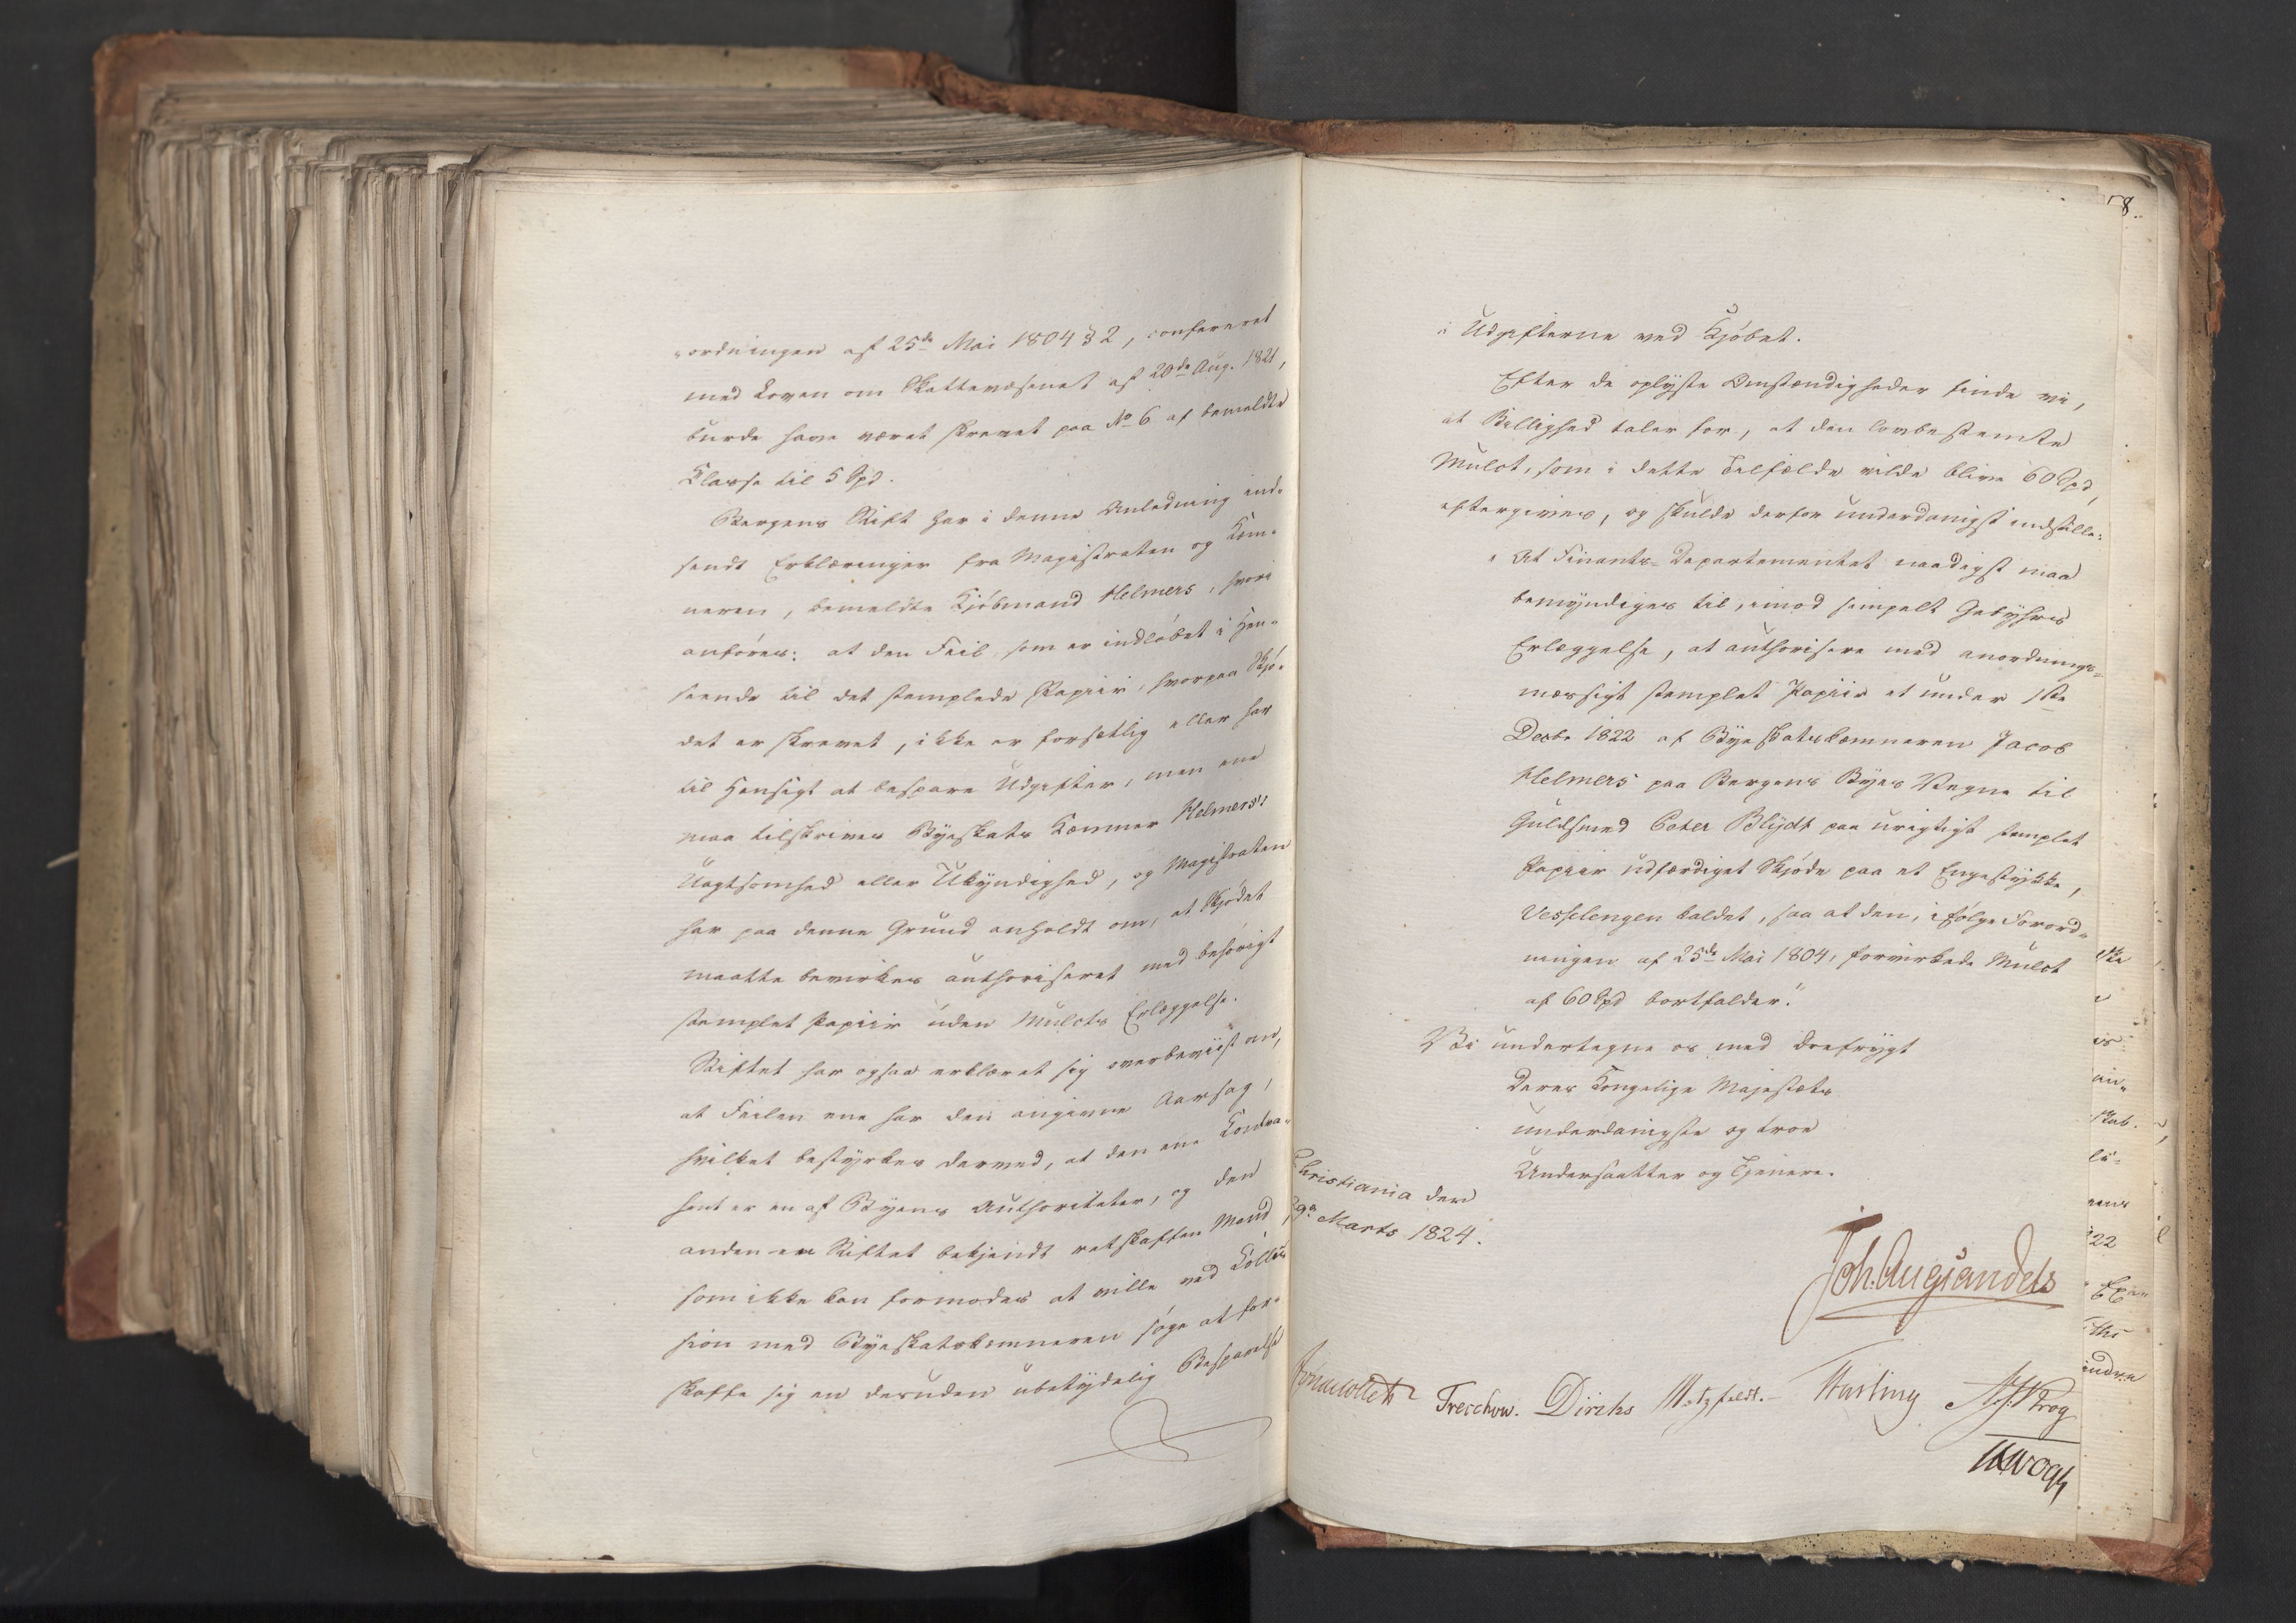 „ordningen af 25de Mai 1804 § 2, confereret
med Loven om Skattevæsenet af 20de Aug. 1821,
burde have været skrevet paa No 6 af bemeldte
Classe til 5 Spd.
Bergens Stift har i denne Anledning ind-
sendt Erklæringer fra Magistraten og Kæm-
neren, bemeldte Kjöbmand Helmers, hvori
anföres: at den Feil som er indlöbet i Hen-
seende til det stemplede Papiir, hvorpaa Skjö-
det er skrevet, ikke er forsætlig eller har
til Hensigt at bespare Udgifter, men ene
maa tilskrives Byeskats Kæmner Helmers's
Uagtsomhed eller Ukyndighed, og Magistraten
har paa denne Grund anholdt om, at Skjödet
maatte bevirkes authoriseret med behörigt
stemplet Papiir uden Mulcts Erlæggelse.
Stiftet har ogsaa erklæret sig overbeviist om,
at Feilen ene har den angivne Aarsag,
hvilket bestyrkes derved, at den ene Contra-
hent er en af Byens Authoriteter, og den
anden en Stiftet bekjendt retskaffen Mand
som ikke kan formodes at ville ved Collu-
sion med Byeskatskæmneren söge at for-
skaffe sig en desuden ubetydelig Besparelse
8.
i Udgifterne ved Kjöbet.
Efter de oplyste Omstændigheder finde vi,
at Billighed taler for, at den lovbestemte
Mulct, som i dette Tilfælde vilde blive 60 Spd,
eftergives, og skulde derfor underdanigst indstille:
„At Finants-Departementet naadigst maa
bemyndiges til, imod simpelt Gebyhrs
Erlæggelse, at authorisere med anordnings-
mæssigt stemplet Papiir et under 1ste
Decbr 1822 af Byeskatskæmneren Jacob
Helmers paa Bergens Byes Vegne til
Guldsmed Peter Blydt paa urigtigt stemplet
Papiir udfærdiget Skjöde paa et Engestykke,
Vesselengen kaldet, saa at den, i fölge Forord-
ningen af 25de Mai 1804, forvirkede Mulct
af 60 Spd bortfalder."
Vi undertegne os med Ærefrygt
Deres Kongelige Majestæts
underdanigste og troe
Undersaatter og Tjenere.
Christiania den
Marts 1824.
Joh. Aug. Sandels
Jonas Collett Treschow. Diriks Motzfeldt. Fasting A. J. Krog
Vogt